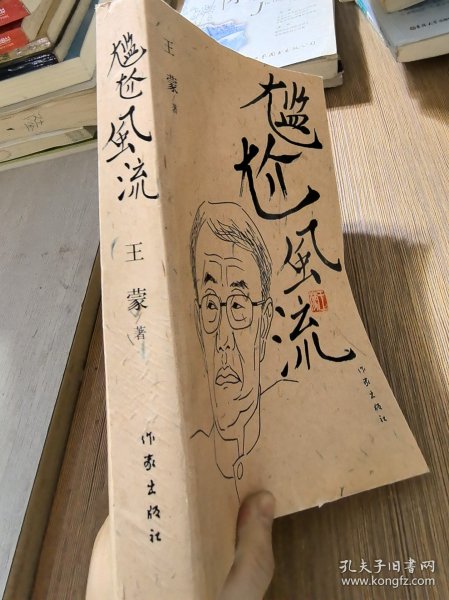 尴尬風流
王蒙著
作家出版社
王蒙著
尴尬風流
作家出版社
孔夫子旧书网
www.kongfz.com